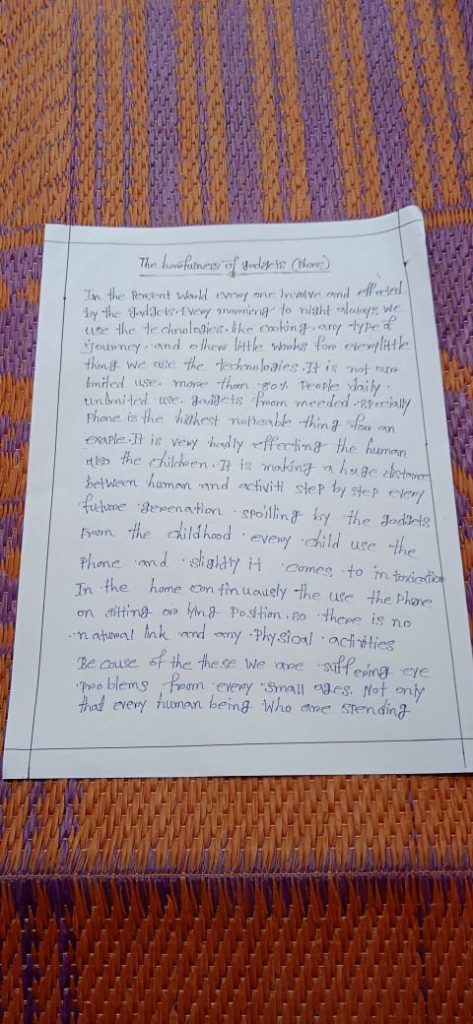 The harmfulness of gadgets (Phone)
In the Persent World every one Involve and effected
by the gadgets. Every morning to night always we
use the technologies. like cooking. any type of
journey. and others little works for every little
thing we use the technologies. It is not
limited use. more than 80% People daily.
unlimited use. gadgets from needed. specially
Phone is the highest noticable thing for an
exaple. It is very badly effecting the human
also the children. It is making a huge distance
between human and activiti step by step every
future generation. spoilling by the gadgets
from the childhood. every child use the
Phone and slightly it comes to intoxication
In the home continuously the use the Phone
on sitting or lying Position. so there is no
natural link and any Physical activities
Because of the these we are suffering eye
problems from every small ages. Not only
that every human being Who are spending